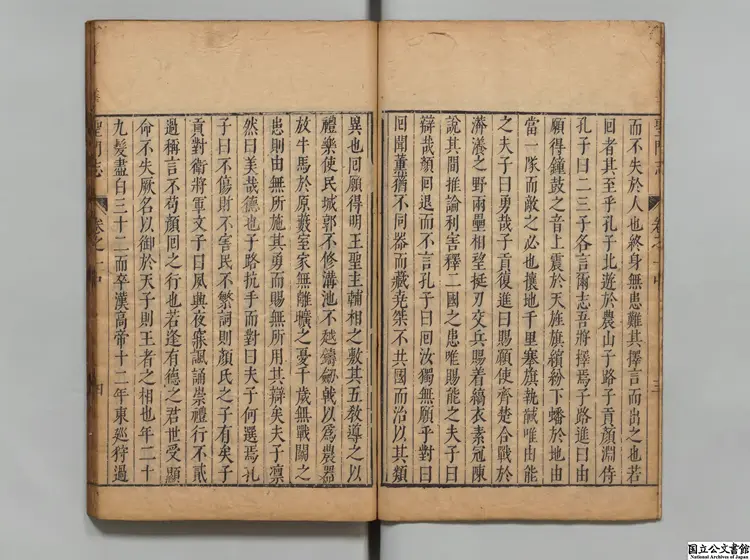 聖門志 卷之一中 三
而不失於人也終身無患難其擇言而出之也若
回者其至乎孔子北遊於農山子路子貢顔淵侍
孔子曰二三子各言爾志吾將擇焉子路進曰由
願得鐘鼓之音上震於天旌旗繽紛下蟠於地由
當一隊而敵之必也攘地千里搴旗執馘唯由能
之夫子曰勇哉子貢復進曰賜願使齊楚合戰於
漭瀁之野兩壘相望挺刃交兵賜着縞衣素冠陳
說其間推論利害釋二國之患唯賜能之夫子曰
辯哉顔回退而不言孔子曰回汝獨無願乎對曰
回聞薰蕕不同器而藏堯桀不共國而治以其類
異也回願得明王聖主輔相之敷其五敎導之以
禮樂使民城郭不修溝池不越鑄劒戟以爲農器
放牛馬於原藪室家無離曠之憂千歲無戰鬪之
患則由無所施其勇而賜無所用其辯矣夫子凜
然曰美哉德也子路抗手而對曰夫子何選焉孔
子曰不傷財不害民不繁詞則顔氏之子有矣子
貢對衛將軍文子曰夙興夜寐諷誦崇禮行不貳
過稱言不苟顔回之行也若逢有德之君世受顯
命不失厥名以御於天子則王者之相也年二十
九髮盡白三十二而卒漢高帝十二年東巡狩過
聖門志 卷之一中 四
国立公文書館
National Archives of Japan